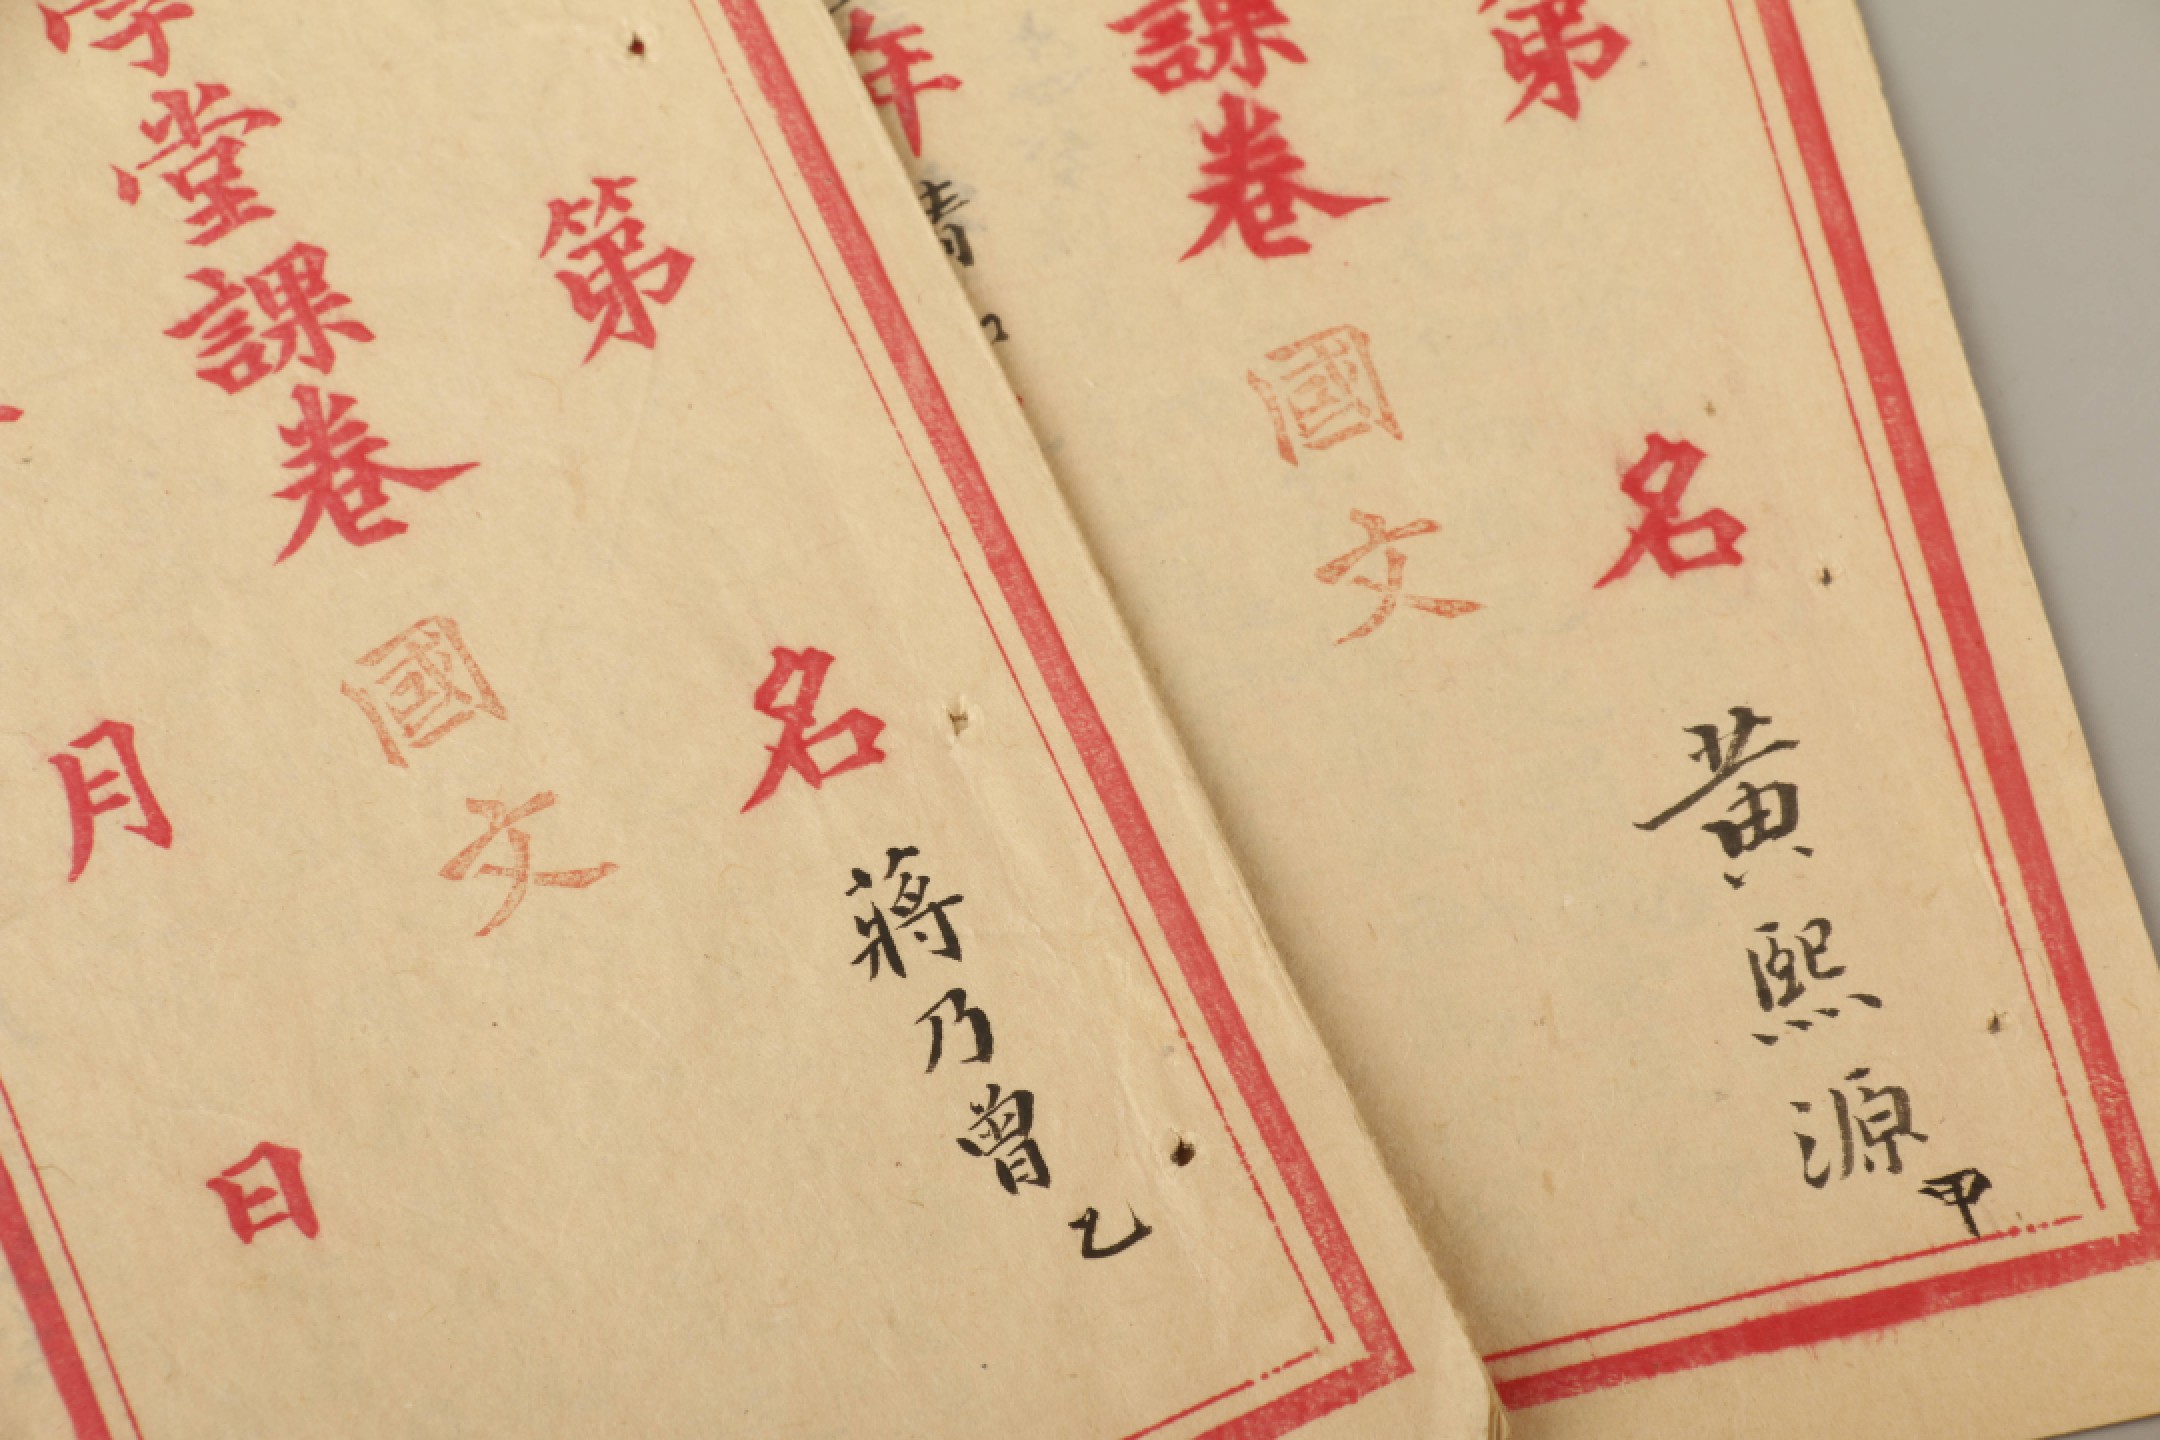 第 名 黃熙源 甲
課卷 國文
年
第 名 蔣乃曾 乙
學堂課卷 國文
月 日